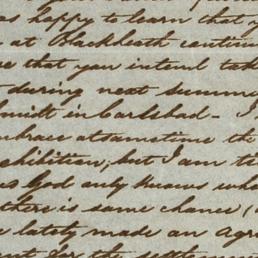 as happy to learn that y
at Blackheath continu
e that you intend tak
during next summe
hmidt in Carlsbad - I
mbrace at sametime the
xhibition, but I am te
es God only knows whe
there is some chance (
e lately made an agr
ent for the settlemen